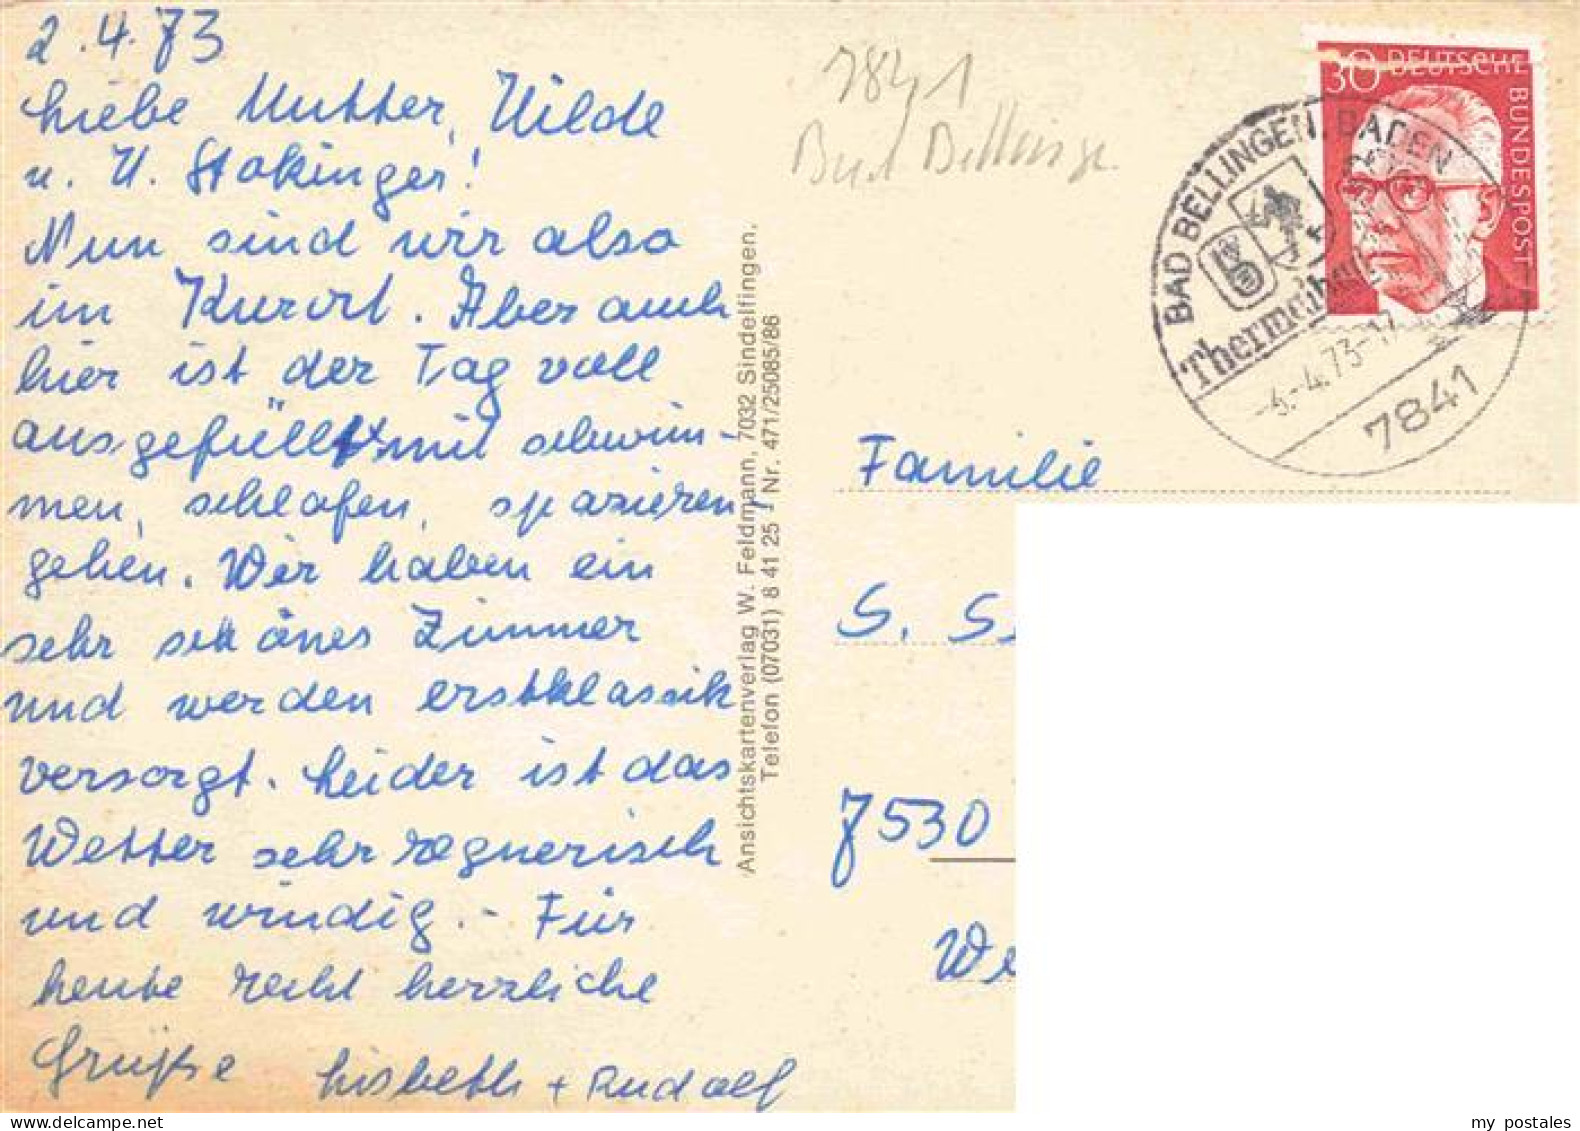 2.4.73
Liebe Mutter, Hilde
u. H. Stokinger!
Nun sind wir also
im Kurort. Aber auch
hier ist der Tag voll
ausgefüllt mit schwim-
men, schlafen, spazieren
gehen. Wir haben ein
sehr schönes Zimmer
und werden erstklassik
versorgt. Leider ist das
Wetter sehr regnerisch
und windig. - Für
heute recht herzliche
Grüße Lisbeth + Rudolf
Ansichtskartenverlag W. Feldmann, 7032 Sindelfingen,
Telefon (07031) 8 41 25 - Nr. 471/25085/86
7841
Bad Bellingen
30 DEUTSCHE
BUNDESPOST
BAD BELLINGEN, BADEN
-4.73-
7841
Familie
S. S.
7530
We
my postales